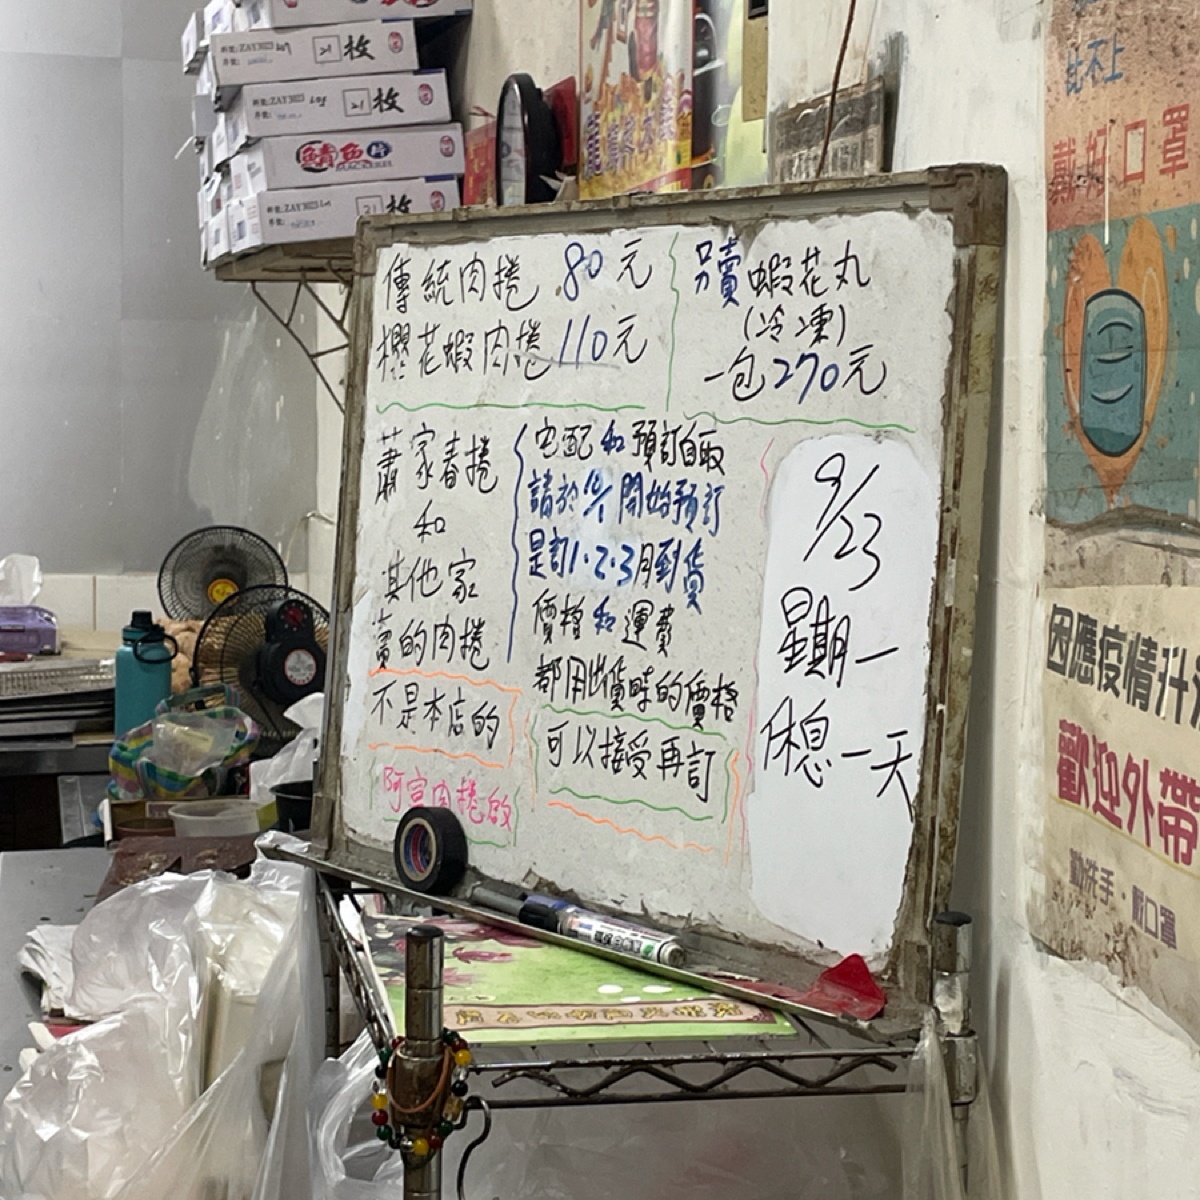 21 枚
21 枚
鯖魚片
21 枚
傳統肉捲 80元
櫻花蝦肉捲 110元
另賣蝦花丸
(冷凍)
一包270元
蕭家春捲
和
其他家
賣的肉捲
不是本店的
阿宮肉捲啟
宅配和預訂自取
請於 開始預訂
是訂1.2.3月到貨
價格和運費
都用出貨時的價格
可以接受再訂
9/23
星期一
休息一天
比不上
戴好口罩
因應疫情升
歡迎外帶
勤洗手·戴口罩